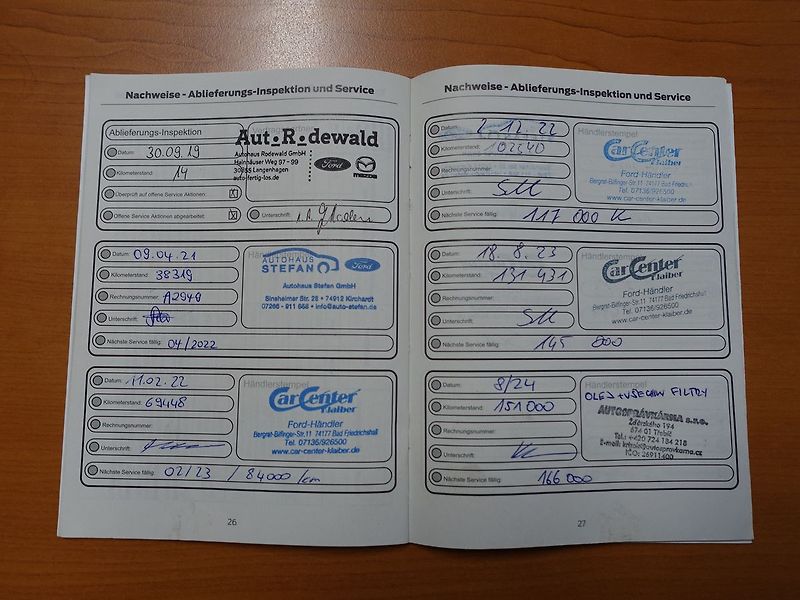 Nachweise - Ablieferungs-Inspektion und Service
Ablieferungs-Inspektion
Datum: 30.09.19
Kilometerstand: 14
Überprüft auf offene Service Aktionen: X
Offene Service Aktionen abgearbeitet: X
Aut.R.dewald
Autohaus Rodewald GmbH
Hainhäuser Weg 97 - 99
30855 Langenhagen
auto-fertig-los.de
Ford
mazda
Unterschrift:
Datum: 09.04.21
Kilometerstand: 38319
Rechnungsnummer: A2940
Unterschrift:
Nächste Service fällig: 04/2022
AUTOHAUS
STEFAN
Ford
Autohaus Stefan GmbH
Sinsheimer Str. 28 • 74912 Kirchardt
07266 - 911 668 • info@auto-stefan.de
Datum: 11.02.22
Kilometerstand: 69448
Rechnungsnummer:
Unterschrift:
Nächste Service fällig: 02/23 / 84000 km
Händlerstempel
CarCenter
Klaiber
Ford-Händler
Bergrat-Bilfinger-Str.11 74177 Bad Friedrichshall
Tel. 07136/926500
www.car-center-klaiber.de
26
Nachweise - Ablieferungs-Inspektion und Service
Datum: 2.12.22
Kilometerstand: 102240
Rechnungsnummer:
Unterschrift:
Nächste Service fällig: 117 000
Händlerstempel
CarCenter
Klaiber
Ford-Händler
Bergrat-Bilfinger-Str.11 74177 Bad Friedrich
Tel. 07136/926500
www.car-center-klaiber.de
Datum: 18.8.23
Kilometerstand: 131 431
Rechnungsnummer:
Unterschrift:
Nächste Service fällig: 145 800
CarCenter
Klaiber
Ford-Händler
Bergrat-Bilfinger-Str.11 74177 Bad Friedrichshall
Tel. 07136/926500
www.car-center-klaiber.de
Datum: 8/24
Kilometerstand: 151000
Rechnungsnummer:
Unterschrift:
Nächste Service fällig: 166 000
OLEJ + VŠECHNY FILTRY
AUTOSPRÁVKÁRNA s.r.o.
Žďárského 194
674 01 Třebíč
Tel.: +420 724 184 218
IČO: 26911400
27